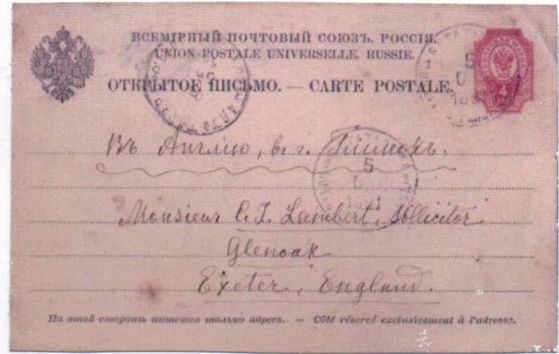 ВСЕМІРНЫЙ ПОЧТОВЫЙ СОЮЗЪ. РОССІЯ.
UNION POSTALE UNIVERSELLE. RUSSIE.
ОТКРЫТОЕ ПИСЬМО. — CARTE POSTALE.
5
Въ Англію, в. г.
5
Monsieur C. T. Lambert, Sollicitor
Glenoak
Exeter, England.
На этой сторонѣ пишется только адресъ. — Côté réservé exclusivement à l'adresse.